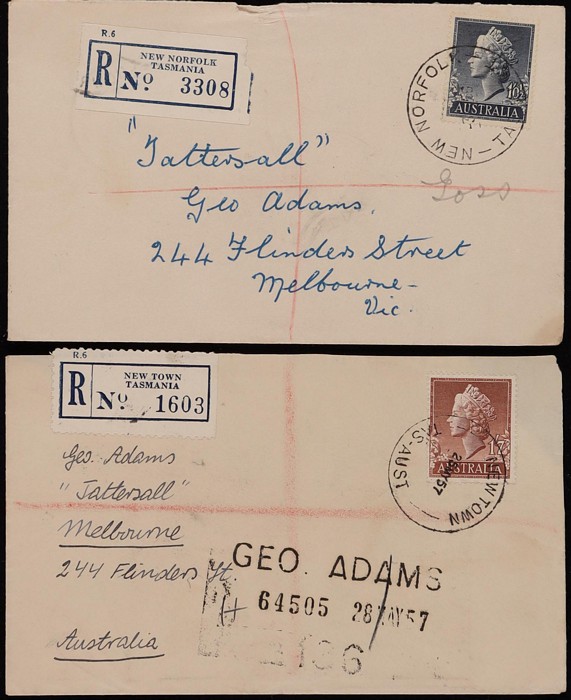 R.6
NEW NORFOLK
TASMANIA
R No 3308
AUSTRALIA
NEW NORFOLK - TA
"Tattersall"
Goss
Geo Adams,
244 Flinders Street
Melbourne -
Vic.
R.6
NEW TOWN
TASMANIA
R No 1603
1/7
AUSTRALIA
NEW TOWN
TAS-AUST
Geo. Adams
"Tattersall"
Melbourne
244 Flinders St.
Australia
GEO. ADAMS
64505 28 MAY 57